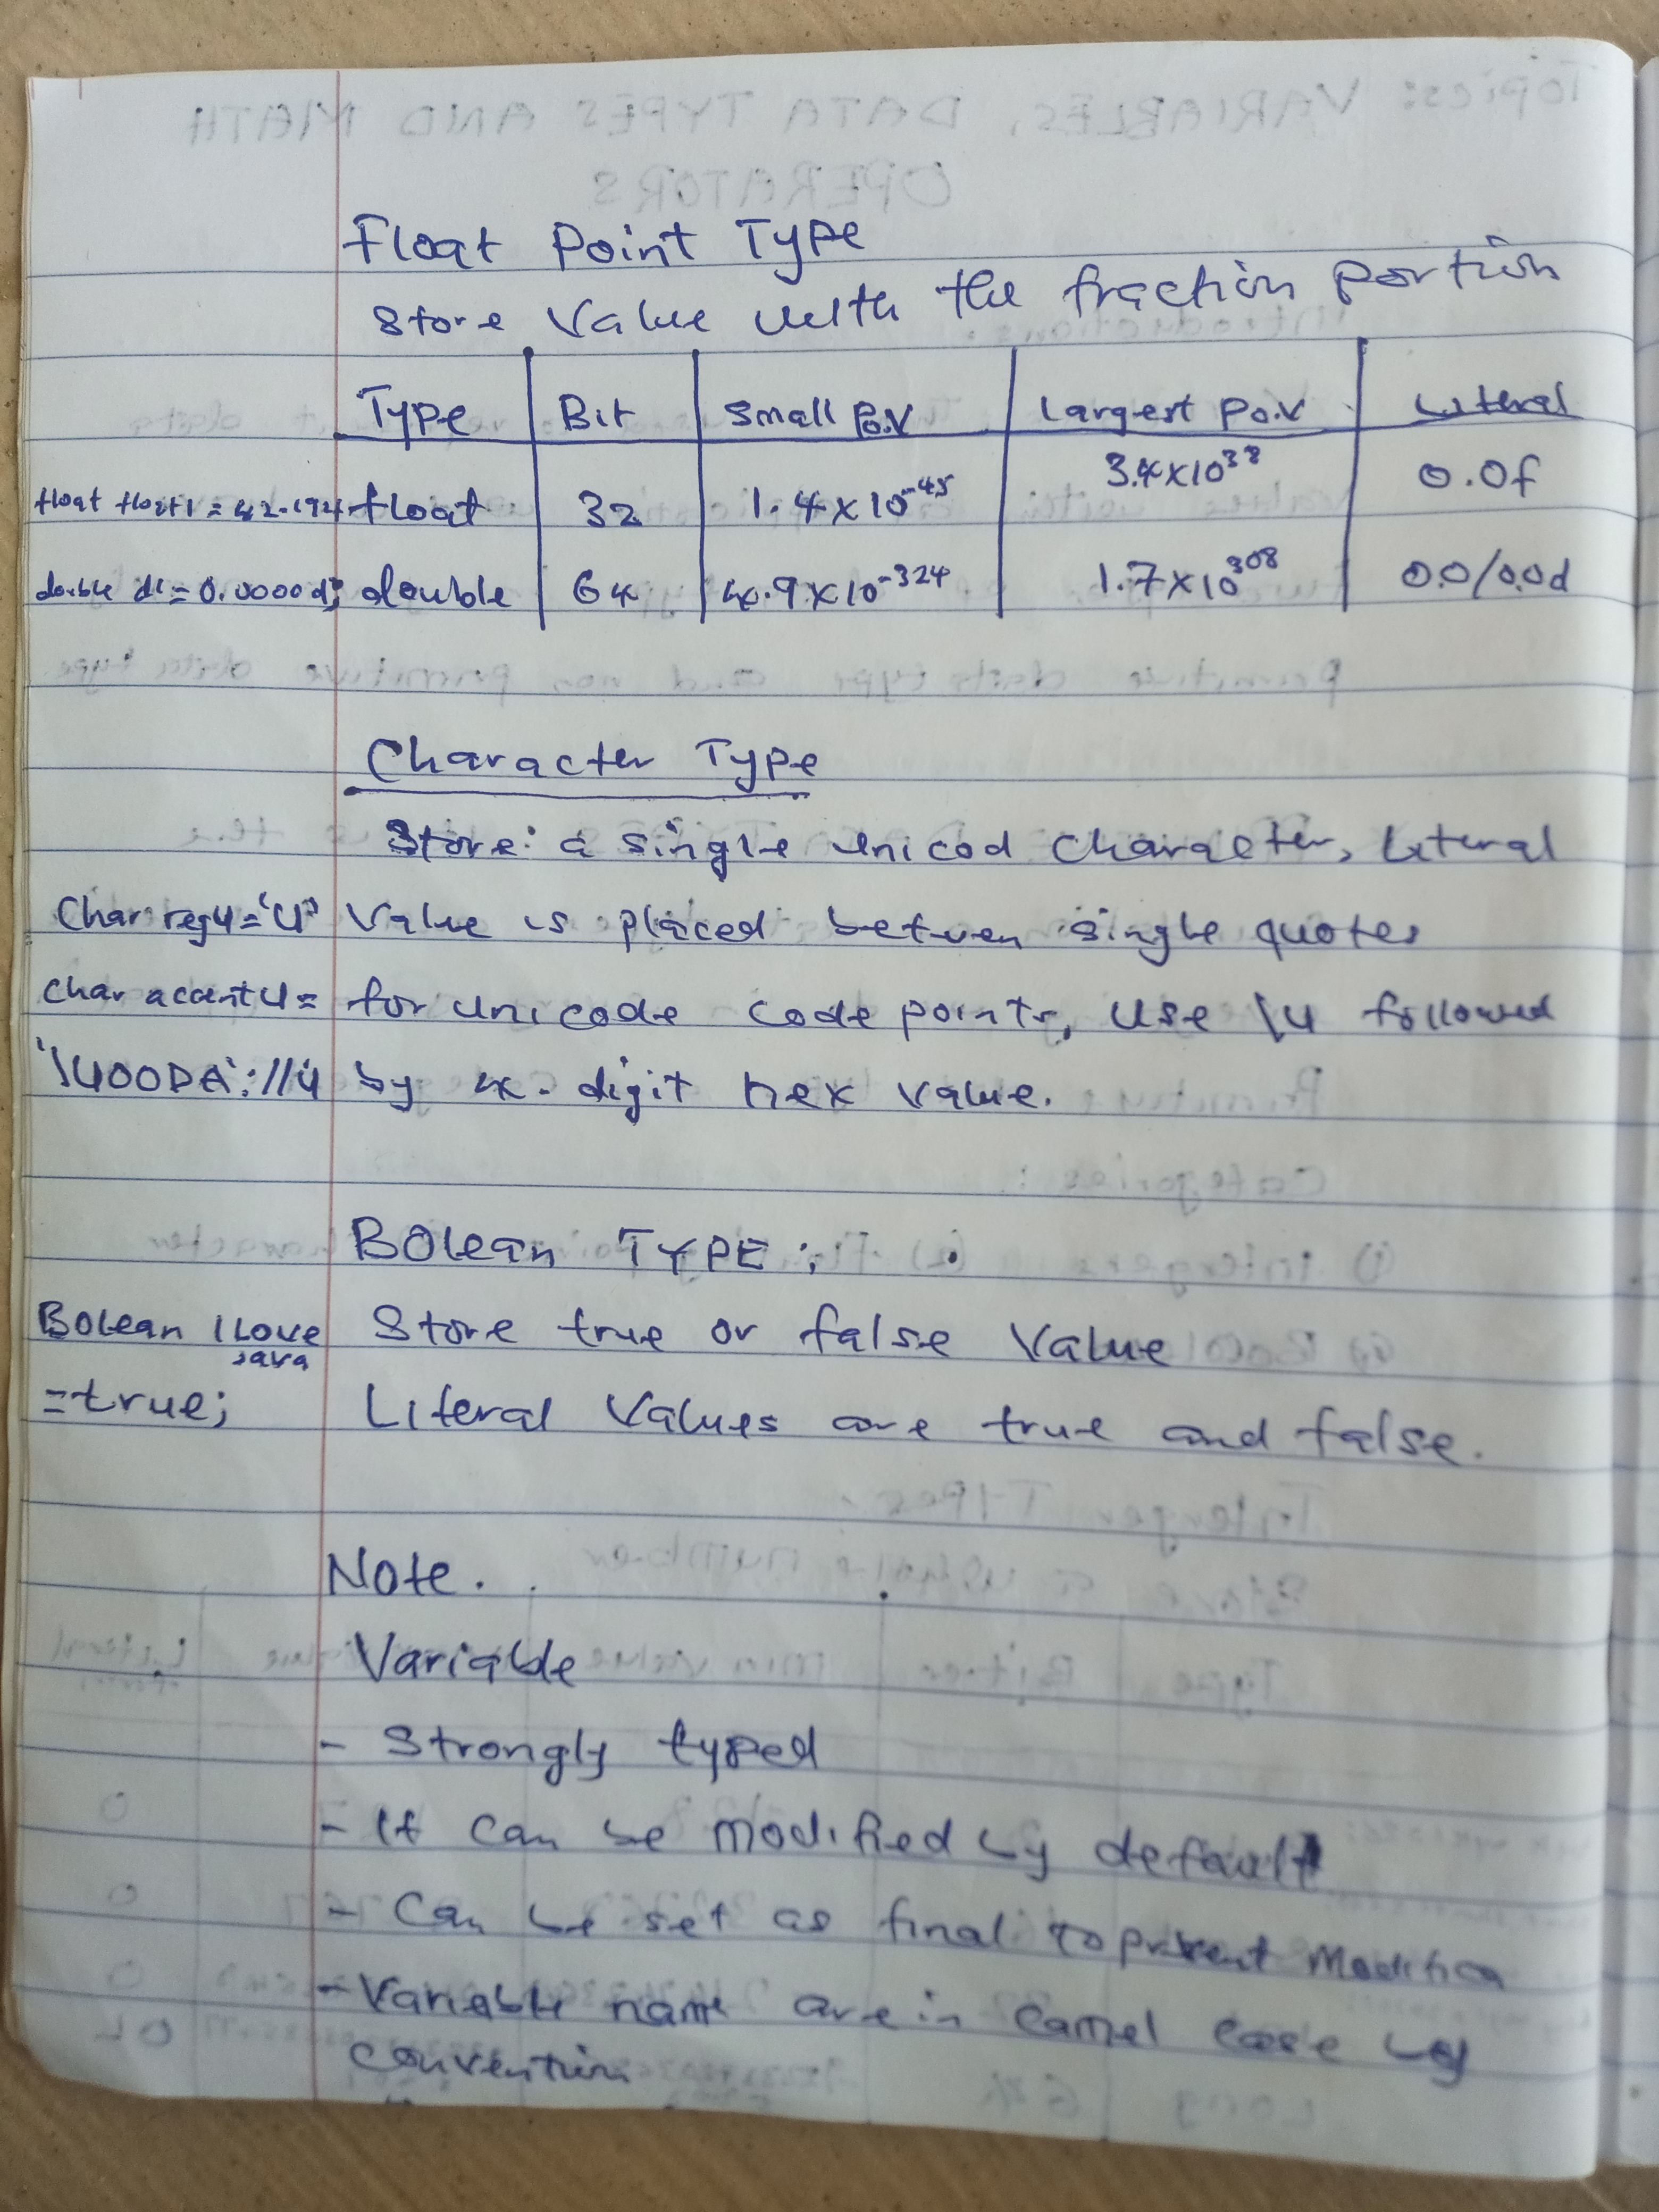 Float Point Type
Store Value with the fraction portion
Type Bit Small Po.V Largest Po.V Literal
float float1 = 42.192 float 32 1.4x10-45 3.4x10^38 0.0f
double d1 = 0.0000d; double 64 4.9x10-324 1.7x10^308 0.0/0.0d
Character Type
Store: a single unicod Character, Literal
Char regU='U' Value is placed between single quotes
Char accentU= for unicode code points, use \u followed
'\u00DA';//Ú by 4-digit hex value.
BOlean TYPE:
Bolean ILove java Store true or false Value
=true; Literal Values are true and false.
Note.
Variable
- Strongly typed
- It can be modified by default
- Can be set as final to prevent Modifica
- Variable name are in Camel Case by
Convention